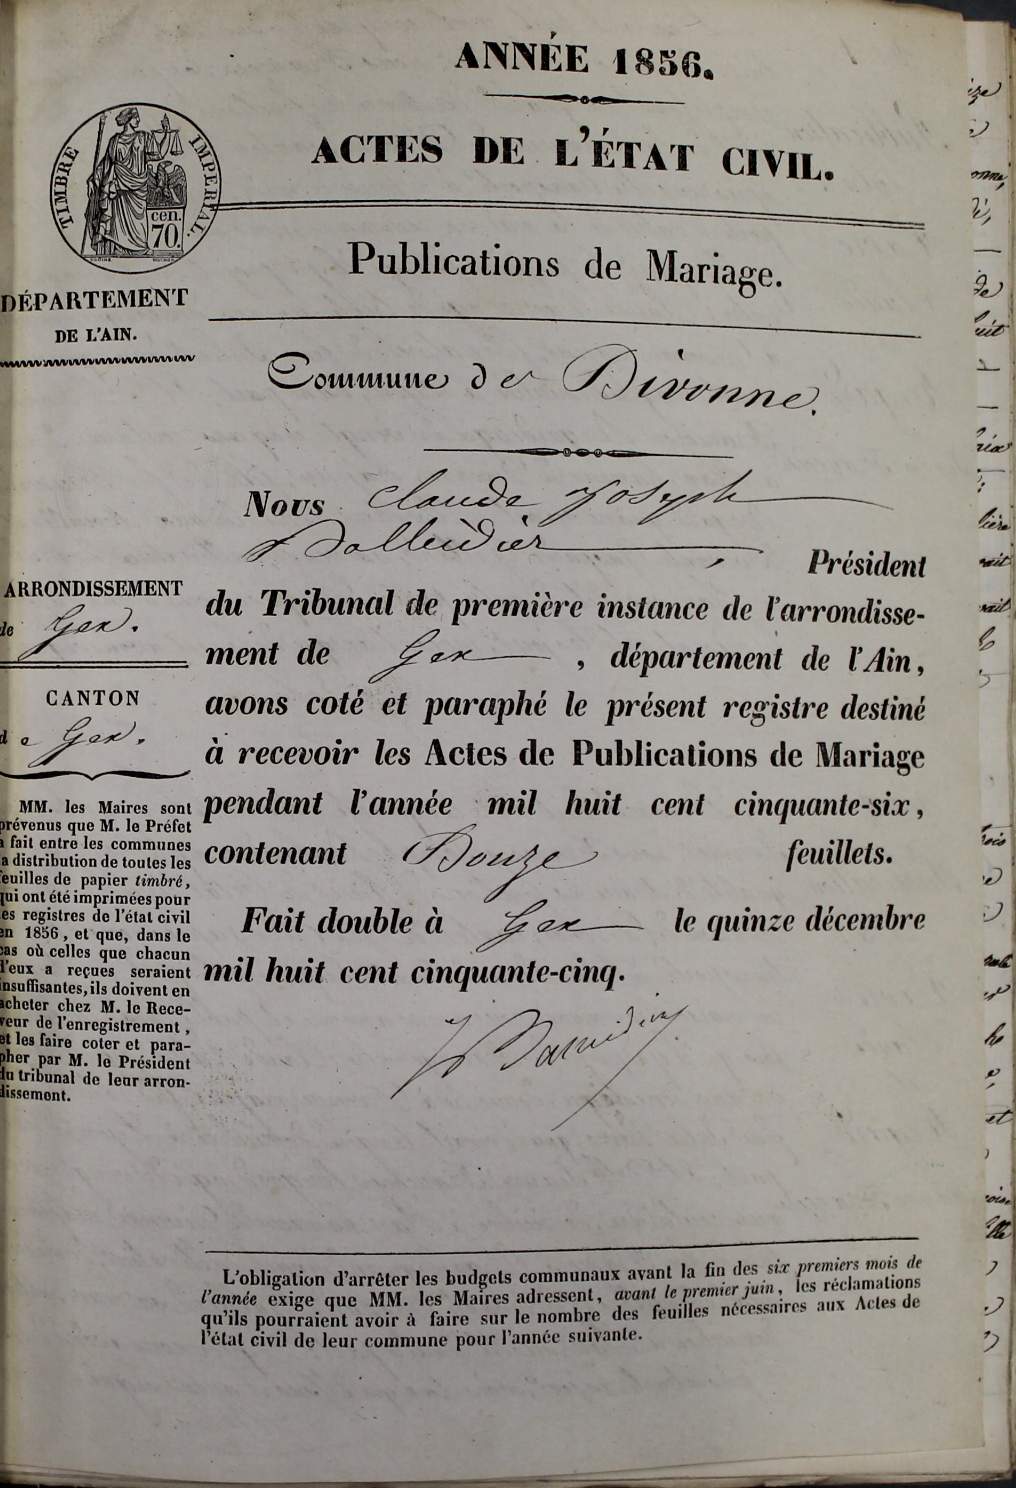 ANNÉE 1856.
ACTES DE L'ÉTAT CIVIL.
TIMBRE IMPERIAL.
cen.
70.
Publications de Mariage.
DÉPARTEMENT
DE L'AIN.
Commune de Divonne.
Nous Claude Joseph
Président
du Tribunal de première instance de l'arrondisse-
ment de Gex, département de l'Ain,
avons coté et paraphé le présent registre destiné
à recevoir les Actes de Publications de Mariage
pendant l'année mil huit cent cinquante-six,
contenant Douze feuillets.
Fait double à Gex le quinze décembre
mil huit cent cinquante-cinq.
ARRONDISSEMENT
de Gex.
CANTON
de Gex.
MM. les Maires sont
prévenus que M. le Préfet
a fait entre les communes
la distribution de toutes les
feuilles de papier timbré,
qui ont été imprimées pour
les registres de l'état civil
en 1856, et que, dans le
cas où celles que chacun
d'eux a reçues seraient
insuffisantes, ils doivent en
acheter chez M. le Rece-
veur de l'enregistrement,
et les faire coter et para-
pher par M. le Président
du tribunal de leur arron-
dissement.
L'obligation d'arrêter les budgets communaux avant la fin des six premiers mois de
l'année exige que MM. les Maires adressent, avant le premier juin, les réclamations
qu'ils pourraient avoir à faire sur le nombre des feuilles nécessaires aux Actes de
l'état civil de leur commune pour l'année suivante.